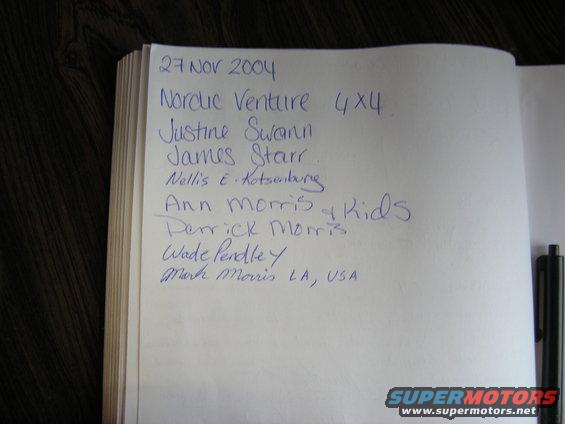 27 Nov 2004
Nordic Venture 4x4
Justine Swann
James Starr
Nellis E. Kotsenburg
Ann Morris & Kids
Derrick Morris
Wade Pendley
Mark Morris LA, USA
SUPERMOTORS
www.supermotors.net